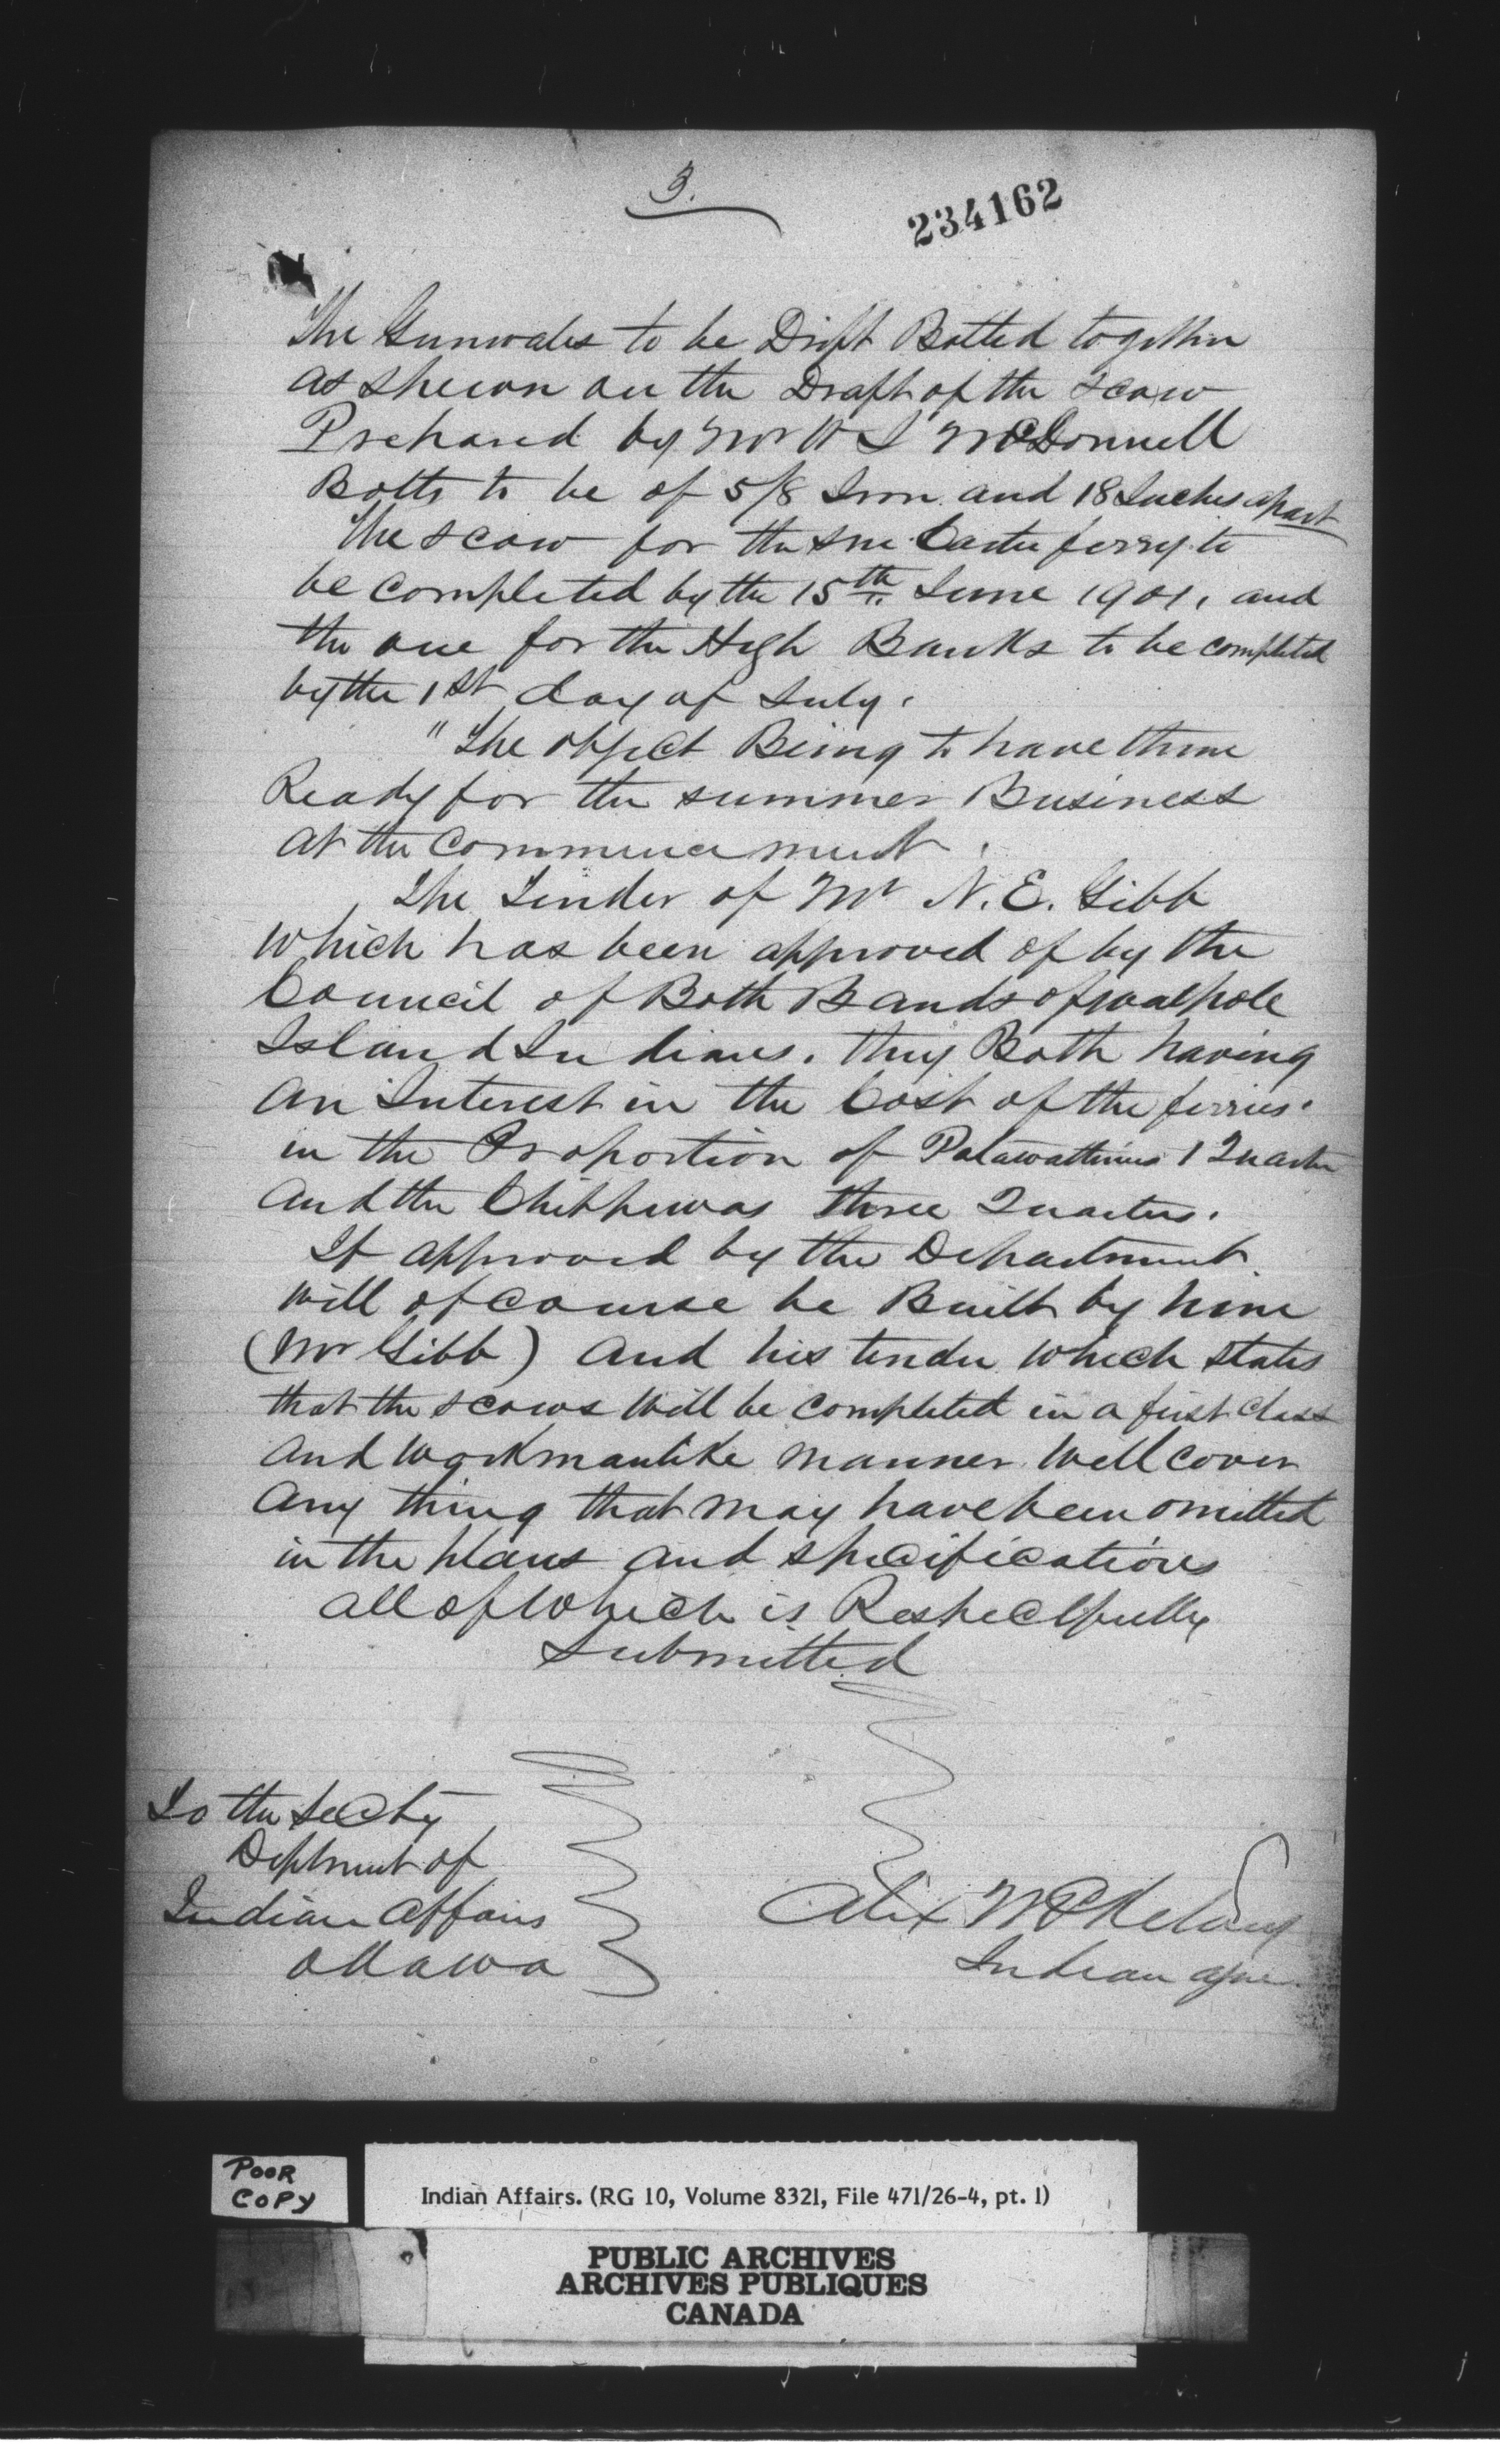 3.
234162
The Gunwales to be Drift Bolted together
as shewn on the Draft of the Scow
Prepared by Mr W S McDonnell
Bolts to be of 5/8 Iron and 18 Inches apart
The scow for the Sni Cartie ferry to
be completed by the 15th June 1901, and
the one for the High Banks to be completed
by the 1st day of July.
"The object Being to have them
Ready for the summer Business
at the commencement.
The Tender of Mr N. E. Gibb
which has been approved of by the
Council of Both Bands of Walpole
Island Indians. they Both having
an Interest in the Cost of the ferries.
in the Proportion of Patawattimies 1 Quarter
and the Chippewas three Quarters.
If approved by the Department.
will of course be Built by him
(Mr Gibb) and his tender which states
that the scows will be completed in a first class
and workmanlike manner will cover
any thing that may have been omitted
in the plans and specifications
all of which is Respectfully
Submitted
To the Secty
Deptment of
Indian Affairs
Ottawa
Alex McKelvey
Indian Agent
POOR
COPY
Indian Affairs. (RG 10, Volume 8321, File 471/26-4, pt. 1)
PUBLIC ARCHIVES
ARCHIVES PUBLIQUES
CANADA